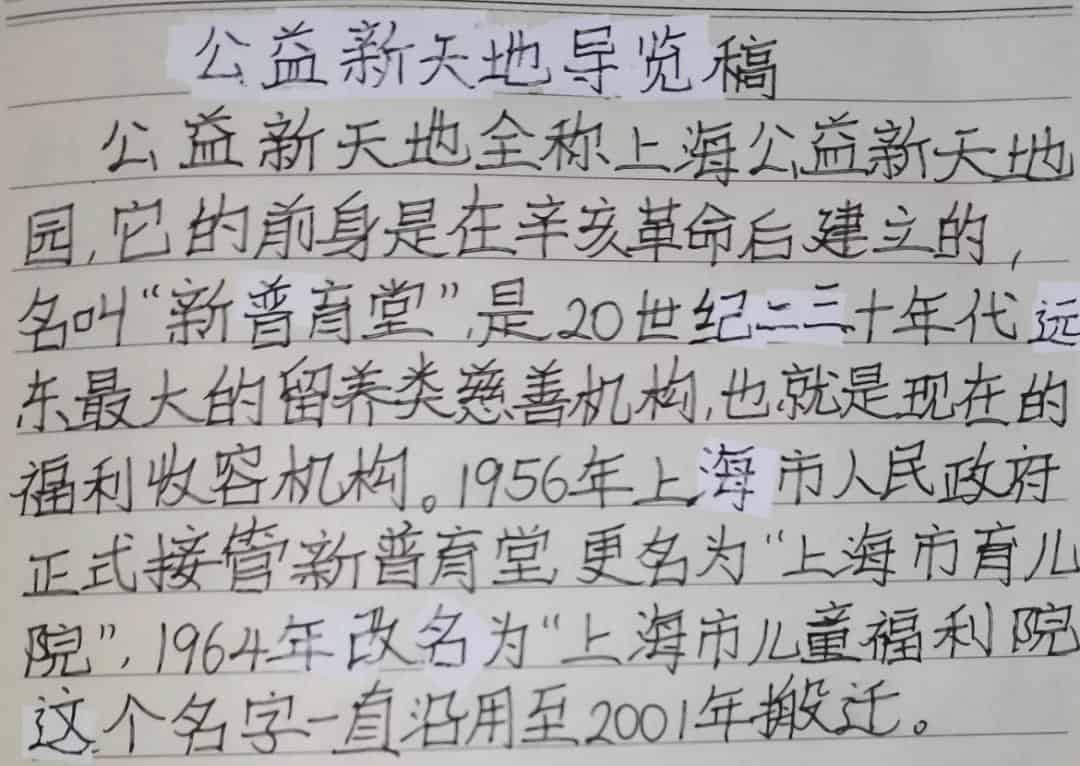 公益新天地导览稿
公益新天地全称上海公益新天地
园,它的前身是在辛亥革命后建立的,
名叫“新普育堂”,是20世纪二三十年代远
东最大的留养类慈善机构,也就是现在的
福利收容机构。1956年上海市人民政府
正式接管新普育堂,更名为“上海市育儿
院”,1964年改名为“上海市儿童福利院
这个名字一直沿用至2001年搬迁。